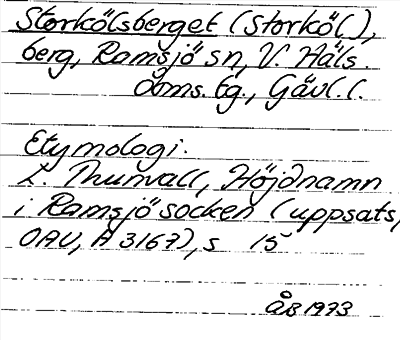 Storkölsberget (Storköl),
berg, Ramsjö sn, V. Häls.
doms. tg., Gävl. l.
Etymologi.
L. Thunvall, Höjdnamn
i Ramsjö socken (uppsats,
OAU, A 3167), s 15
ÅB 1973